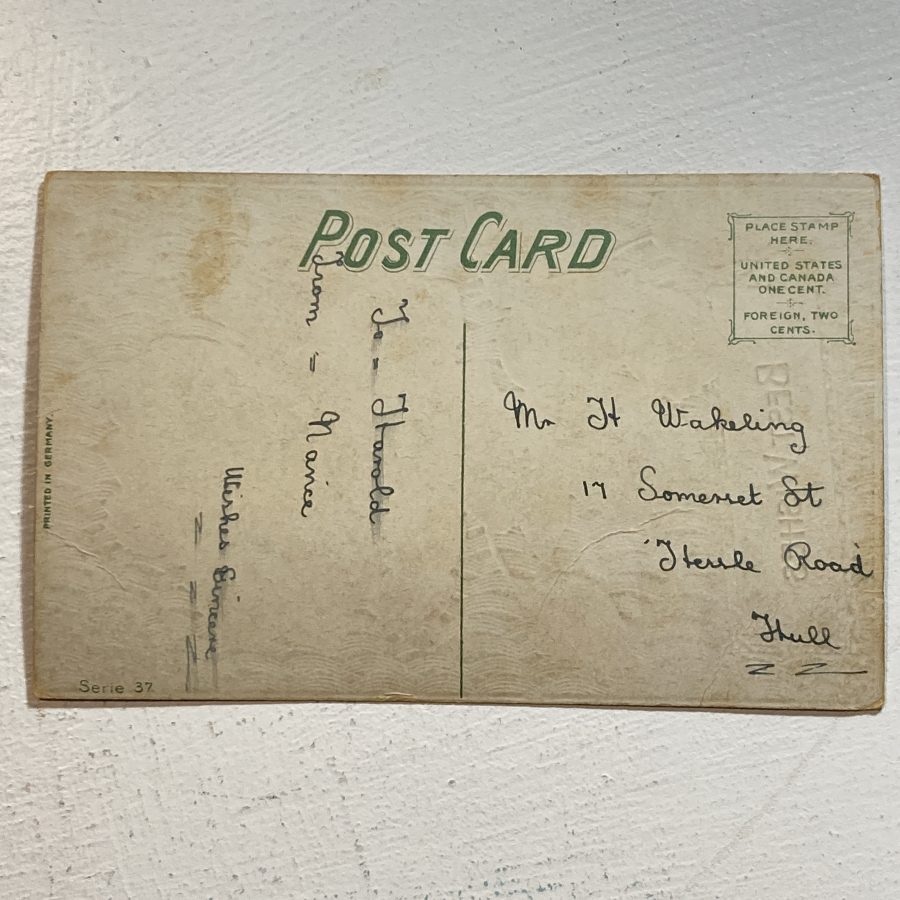 POST CARD
PLACE STAMP
HERE.
UNITED STATES
AND CANADA
ONE CENT.
FOREIGN, TWO
CENTS.
To = Harold
From = Nance
Wishes Sincere
Mr H Wakeling
17 Somerset St
Hessle Road
Hull
BEST WISHES
PRINTED IN GERMANY.
Serie 37